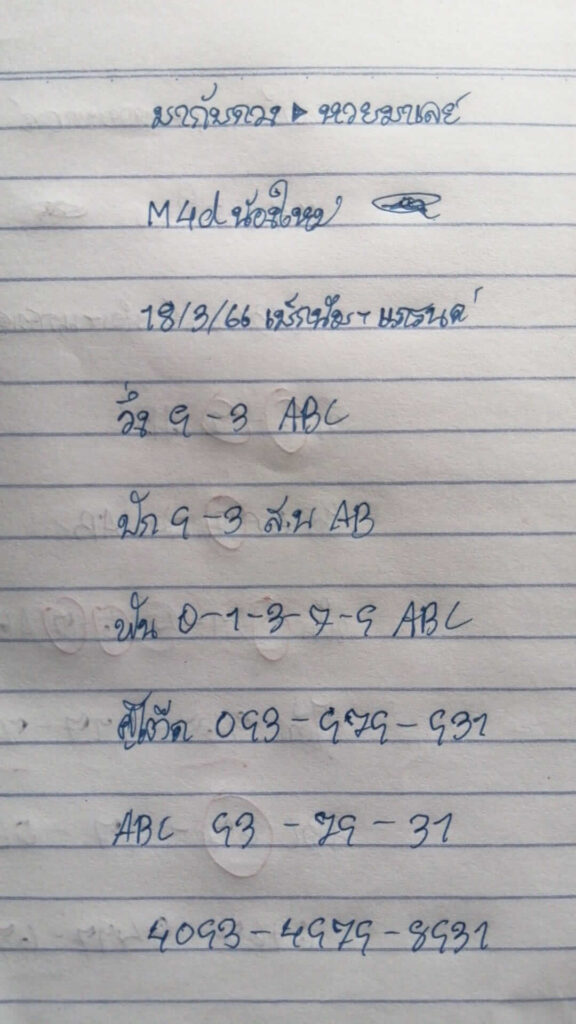 มากับดวง ▶ หวยมาเลย์
M4d น้องใหม่
18/3/66 แม็กนั่ม - แกรนด์
วิ่ง 9-3 ABC
ปัก 9-3 ส.บ AB
ฟัน 0-1-3-7-9 ABC
093-979-931
ABC 93-79-31
4093-4979-8931